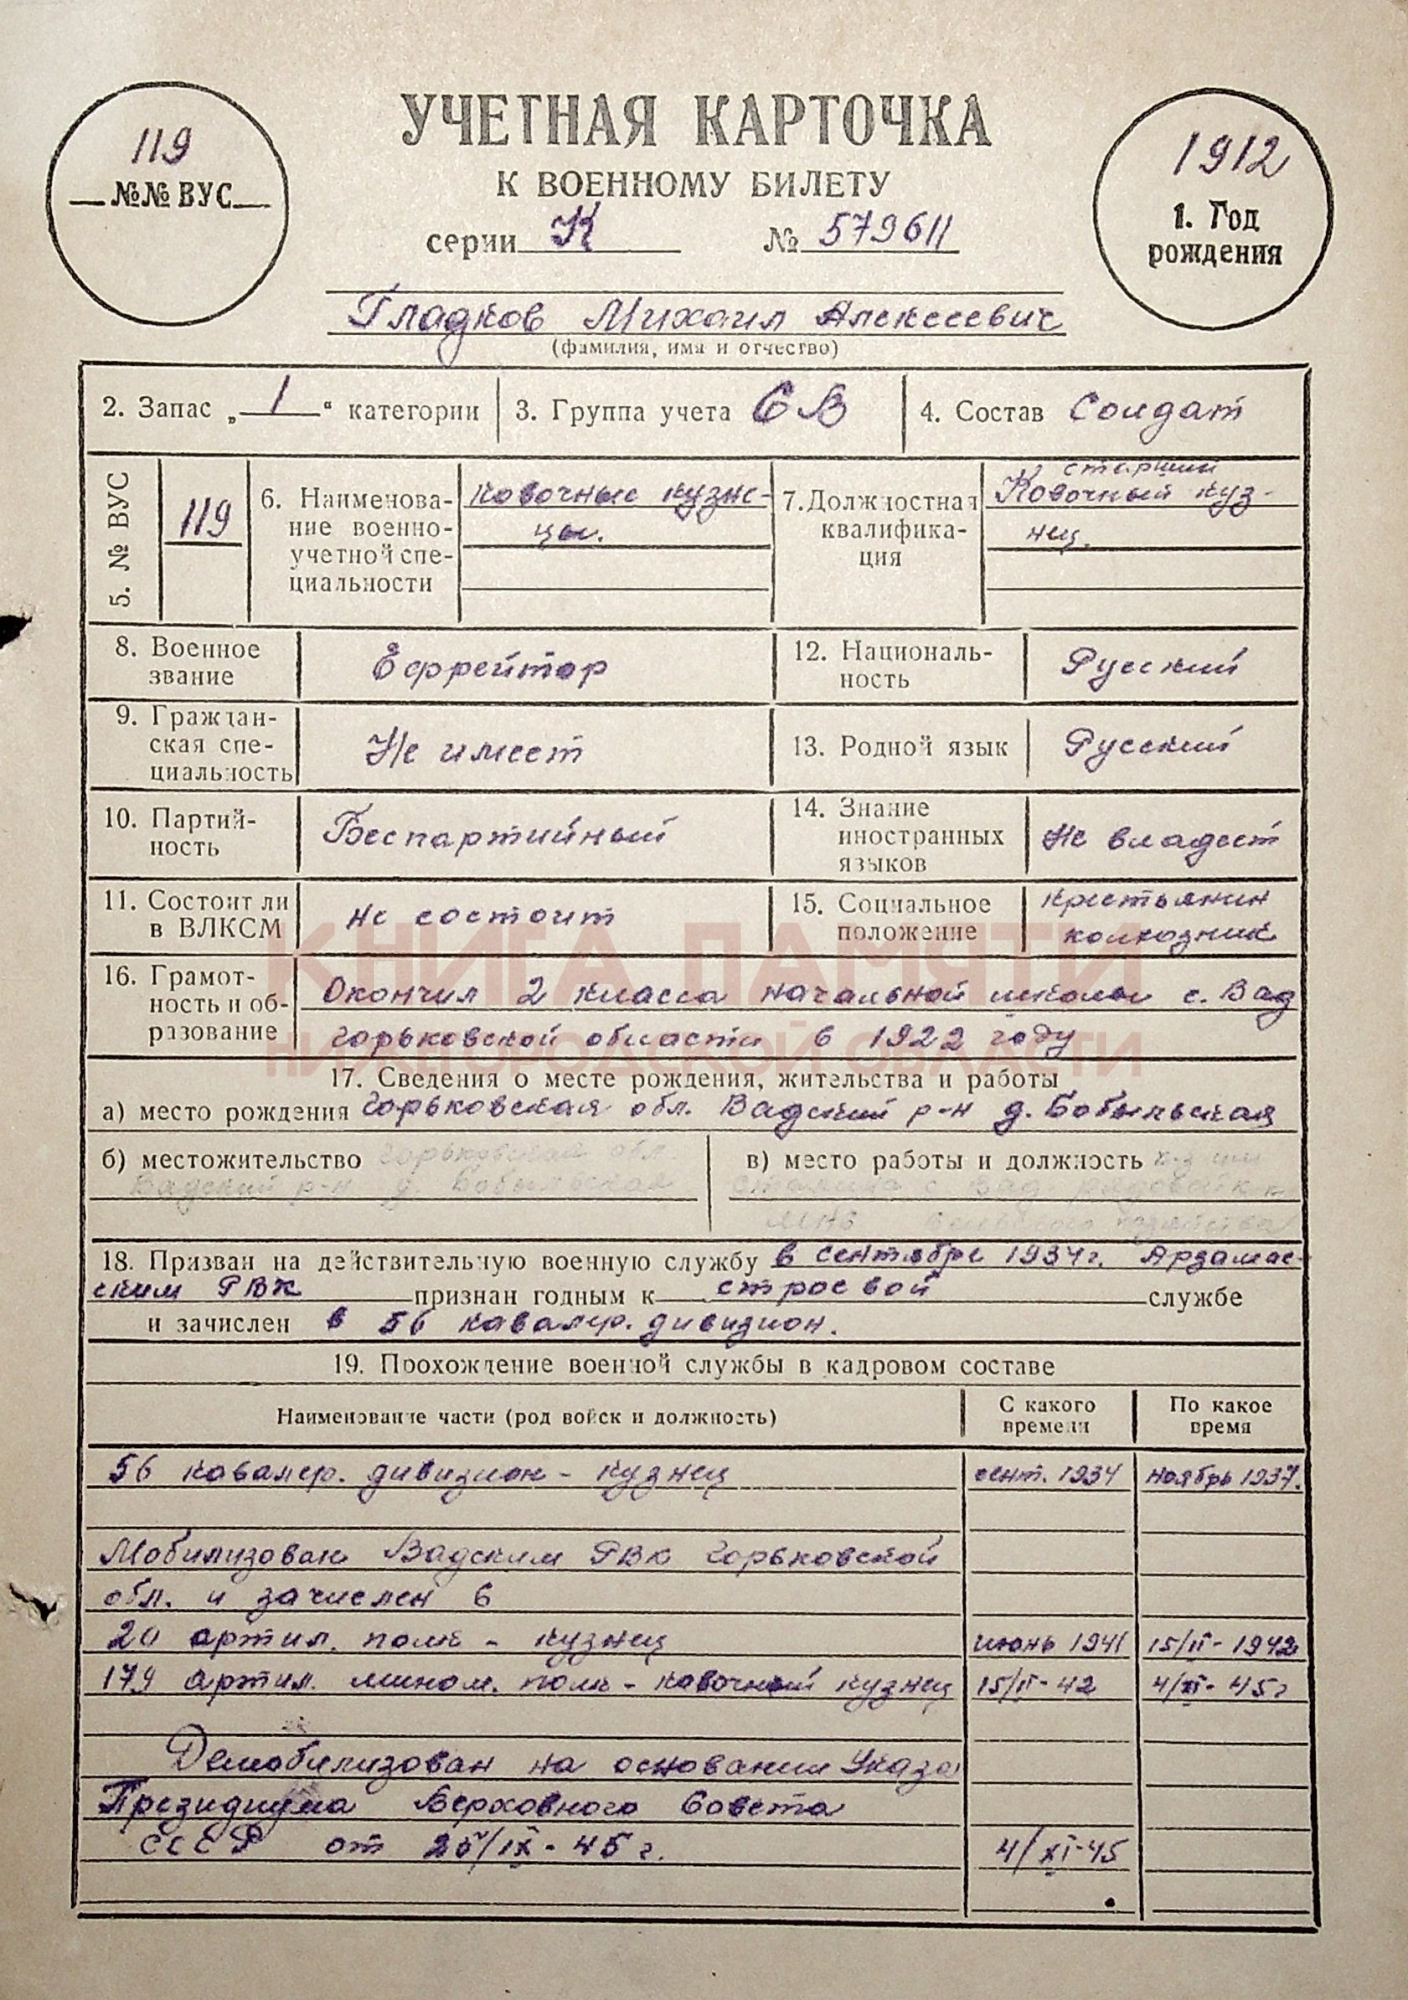 119
№№ ВУС
УЧЕТНАЯ КАРТОЧКА
К ВОЕННОМУ БИЛЕТУ
серии К № 579611
1912
1. Год
рождения
Гладков Михаил Алексеевич
(фамилия, имя и отчество)
2. Запас „1“ категории 3. Группа учета СВ 4. Состав Солдат
5. № ВУС 119
6. Наименова-
ние военно-
учетной спе-
циальности
Ковочные кузне-
цы.
7. Должностная
квалифика-
ция
старший
Ковочный куз-
нец.
8. Военное
звание
Ефрейтор
12. Националь-
ность
Русский
9. Граждан-
ская спе-
циальность
Не имеет
13. Родной язык Русский
10. Партий-
ность
Беспартийный
14. Знание
иностранных
языков
Не владеет
11. Состоит ли
в ВЛКСМ
Не состоит
15. Социальное
положение
крестьянин
колхозник
КНИГА ПАМЯТИ
НИЖЕГОРОДСКОЙ ОБЛАСТИ
16. Грамот-
ность и об-
разование
Окончил 2 класса начальной школы с. Вад
горьковской области в 1922 году
17. Сведения о месте рождения, жительства и работы
а) место рождения Горьковская обл. Вадский р-н д. Бобыльская
б) местожительство горьковская обл.
Вадский р-н д. Бобыльская
в) место работы и должность к-з им
Сталина с Вад рядовой к-к
сельского хозяйства
18. Призван на действительную военную службу в сентябре 1934 г. Арзамас-
ским РВК признан годным к строевой службе
и зачислен в 56 кавалер. дивизион.
19. Прохождение военной службы в кадровом составе
Наименование части (род войск и должность)
С какого
времени
По какое
время
56 кавалер. дивизион - кузнец сент. 1934 ноябрь 1937.
Мобилизован Вадским РВК Горьковской
обл. и зачислен в
20 артил. полк - кузнец июнь 1941 15/II - 1942
179 артил. мином. полк - ковочный кузнец 15/II - 42 4/XI - 45 г
Демобилизован на основании Указа
Президиума Верховного Совета
СССР от 25/IX - 45 г. 4/XI-45